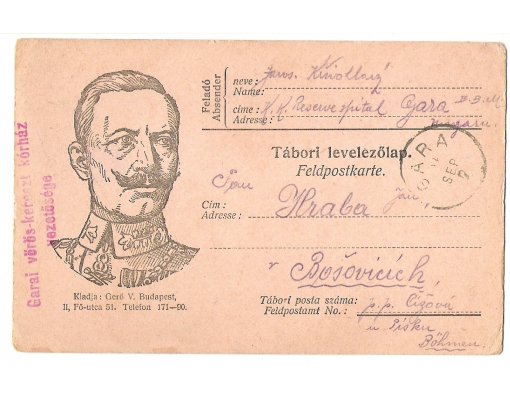 Garai vörös-kereszt kórház
vezetősége
Feladó
Absender
neve:
Name:
Jaros.
cime:
Adresse:
K. K. Reservespital Gara
Ungarn.
Tábori levelezőlap.
Feldpostkarte.
GARA
SEP
Pan
Cím:
Adresse:
Hraba Jan
v Bošovicích,
Tábori posta száma:
Feldpostamt No.:
p.p. Čížová
u Písku
Böhmen.
Kiadja: Gerő V. Budapest,
II, Fő-utca 51. Telefon 171—90.